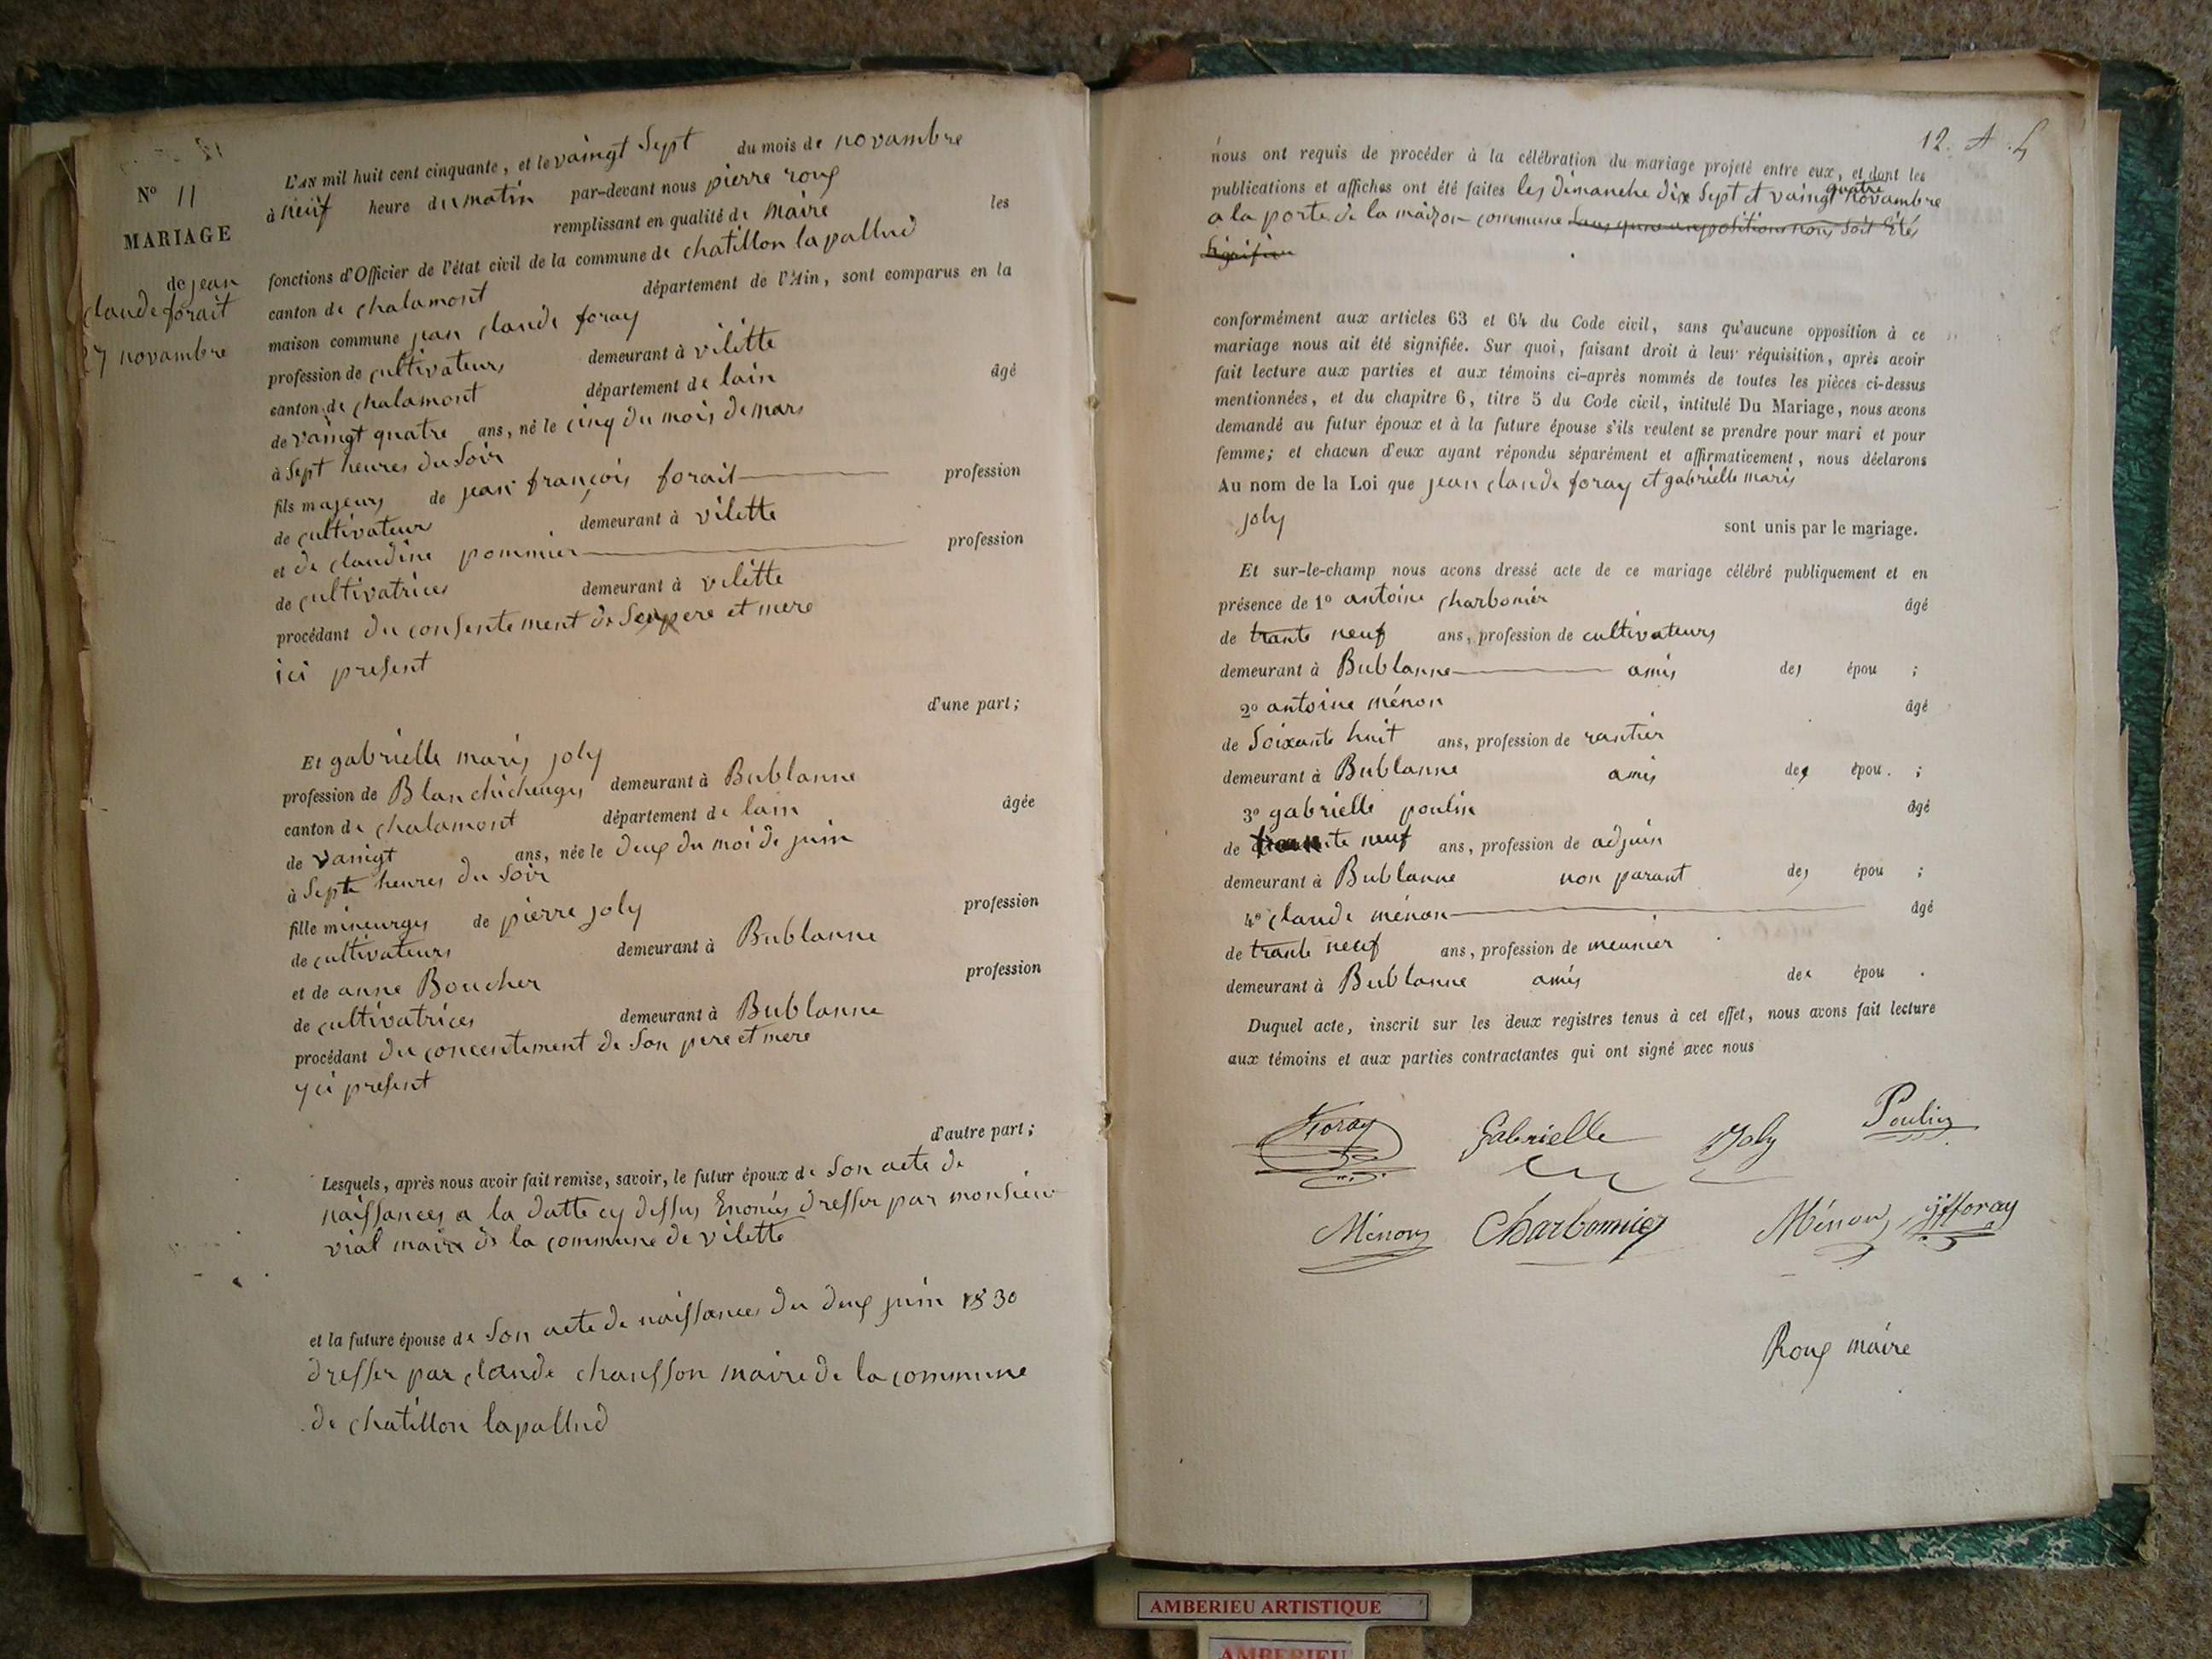 N° 11
MARIAGE
de jean
claude forait
27 novembre
L'AN mil huit cent cinquante, et le vaingt Sept du mois de novembre
à neuf heure du matin par-devant nous pierre roux
remplissant en qualité de maire les
fonctions d'Officier de l'état civil de la commune de chatillon lapallud
canton de chalamont département de l'Ain, sont comparus en la
maison commune jean claude foray
profession de cultivateurs demeurant à vilette
canton de chalamont département de lain âgé
de vaingt quatre ans, né le cinq du mois de mars
à Sept heures du Soir
fils majeurs de jean françois forait profession
de cultivateur demeurant à vilette
et de claudine pommier profession
de cultivatrices demeurant à vilette
procédant du consentement de Ses pere et mere
ici present
d'une part;
Et gabrielle maris joly
profession de demeurant à Bublanne
canton de chalamont département de lain âgée
de vaingt ans, née le deux du moi de juin
à Septe heures du Soir
fille mineurs de pierre joly profession
de cultivateurs demeurant à Bublanne
et de anne Boucher profession
de cultivatrices demeurant à Bublanne
procédant du concentement de Son pere et mere
yci present
d'autre part;
Lesquels, après nous avoir fait remise, savoir, le futur époux de Son acte de
naissances a la datte cy dessus Enoncés dresser par monsieur
vial maire de la commune de vilette
et la future épouse de Son acte de naissances du deux juin 1830
dresser par claude chausson maire de la commune
de chatillon lapallud
12.
nous ont requis de procéder à la célébration du mariage projeté entre eux, et dont les
publications et affiches ont été faites les dimanche dix Sept et vaingt quatre novembre
a la porte de la maizon commune
conformément aux articles 63 et 64 du Code civil, sans qu'aucune opposition à ce
mariage nous ait été signifiée. Sur quoi, faisant droit à leur réquisition, après avoir
fait lecture aux parties et aux témoins ci-après nommés de toutes les pièces ci-dessus
mentionnées, et du chapitre 6, titre 5 du Code civil, intitulé Du Mariage, nous avons
demandé au futur époux et à la future épouse s'ils veulent se prendre pour mari et pour
femme; et chacun d'eux ayant répondu séparément et affirmativement, nous déclarons
Au nom de la Loi que jean claude foray et gabrielle maris
joly sont unis par le mariage.
Et sur-le-champ nous avons dressé acte de ce mariage célébré publiquement et en
présence de 1° antoine charbonier âgé
de trante neuf ans, profession de cultivateurs
demeurant à Bublanne amis des épou ;
2° antoine ménon âgé
de Soixante huit ans, profession de rantier
demeurant à Bublanne amis des épou. ;
3° gabrielle poulin âgé
de neuf ans, profession de adjoin
demeurant à Bublanne non parant des épou ;
4° claude ménon âgé
de trante neuf ans, profession de meunier
demeurant à Bublanne amis des épou .
Duquel acte, inscrit sur les deux registres tenus à cet effet, nous avons fait lecture
aux témoins et aux parties contractantes qui ont signé avec nous
Foray Gabrielle Joly Poulin
Ménon Charbonnier Ménon jfforay
Roux maire
AMBERIEU ARTISTIQUE
AMBERIEU